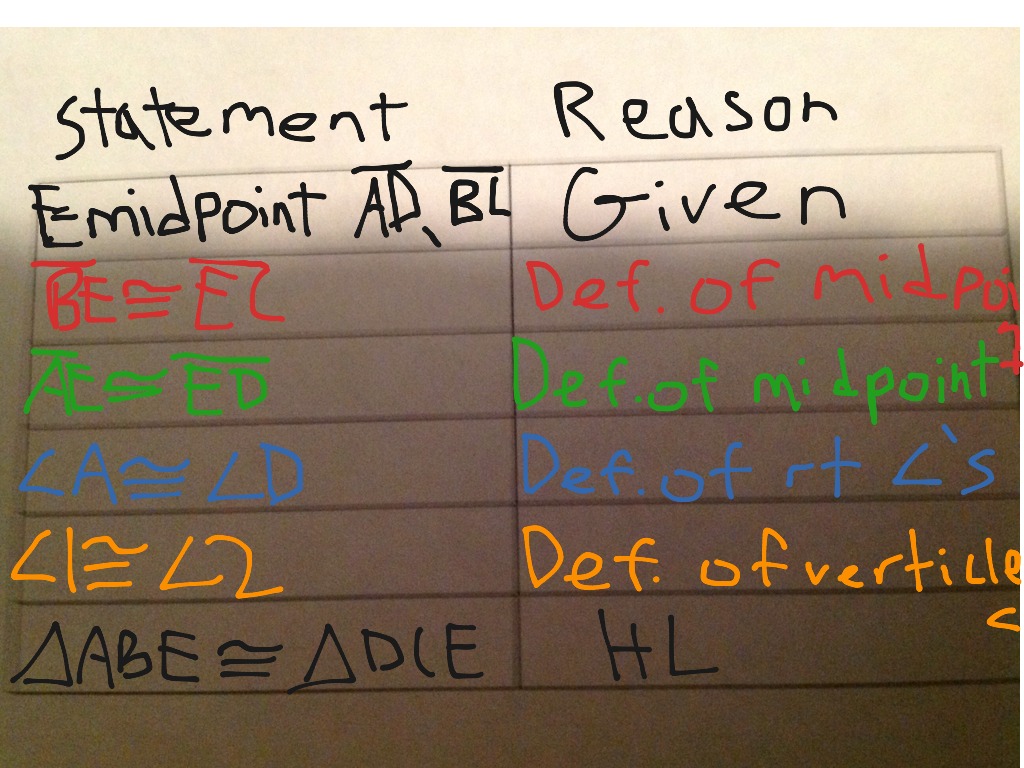 statement Reason
E midpoint AD, BC Given
BE ≅ EC Def. of midpoint
AE ≅ ED Def. of midpoint
∠A ≅ ∠D Def. of rt ∠'s
∠1 ≅ ∠2 Def. of verticle <
△ABE ≅ △DCE HL